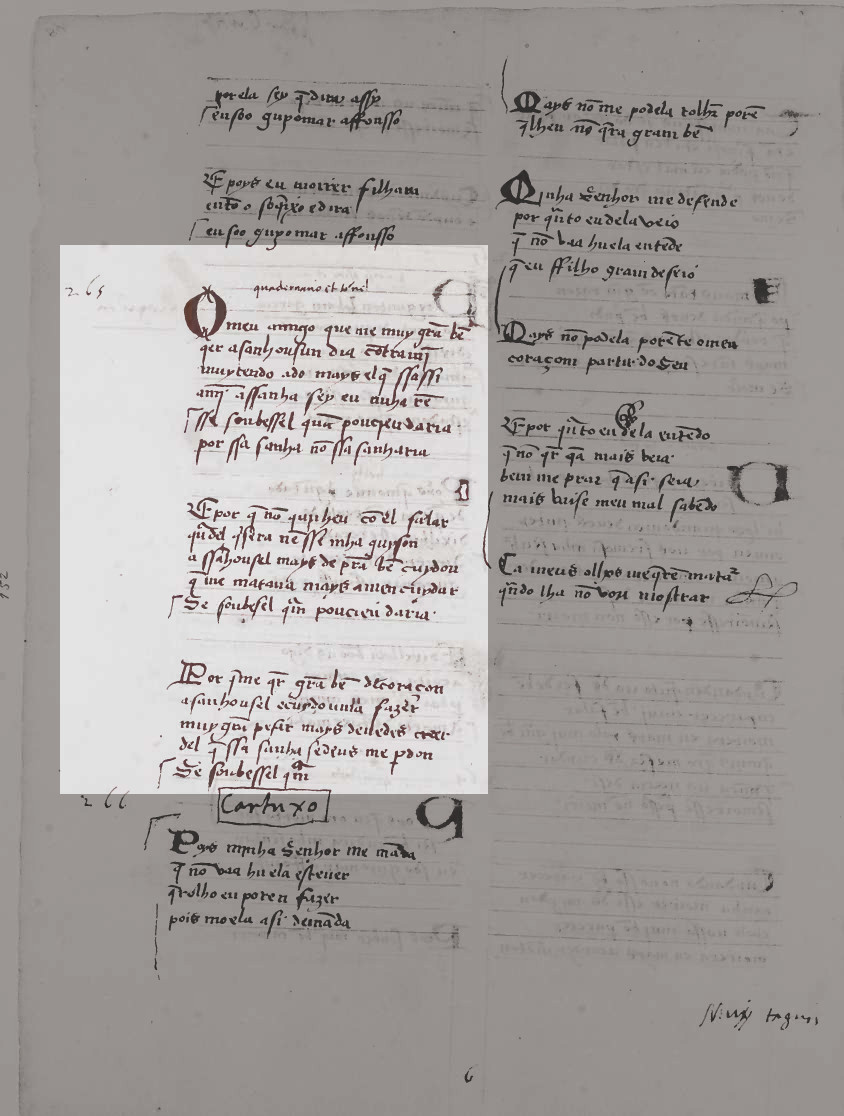 por ela sey q̄ dira assy
eu soo guyomar affonsso
E poys eu morrer filhara
enton o soq̄ixo e dira
eu soo guyomar affonsso
265
O meu amigo que me muy grā bē
q̄er asanhousun dia contra mī
muytendo ado mays el q̄ ssassi
assanha sey eu nnha rē
sse soubessel
por ssa sanha nō ssa sanharia
E por q̄ nō quiheu cō el falar
assāhousel mays de prā bē cuydou
q̄ me matava mays
Se soubesel q̄m pouc eu daria
Por q̄ me q̄r grā bē de coraçon
asanhousel e cuydou mia fazer
muy grā pesar mays devedes creer
del q̄ ssa sanha se deus me pdon
Se soubessel q̄m
266
Cartuxo
Poys minha Senhor me māda
q̄ nō vaa hu ela estever
q̄rolho eu por en fazer
pois mo ela asi demāda
Mays nō me podela tolhr porē
q̄lheu nō q̄ira gram bē
Minha Senhor me defende
por q̄nto eu dela veio
q̄ nō vaa hu ela entēde
q̄ eu ffilho gram deseio
Mays nō podela porē te o meu
coraçom partir do Seu
E por q̄nto eu dela entēdo
q̄ nō q̄r q̄a mais veia
bem me praz q̄ asi seia
mais vaise meu mal sabēdo
Ca meus olhos me q̄rē matar
q̄ndo lha nō vou mostrar
6